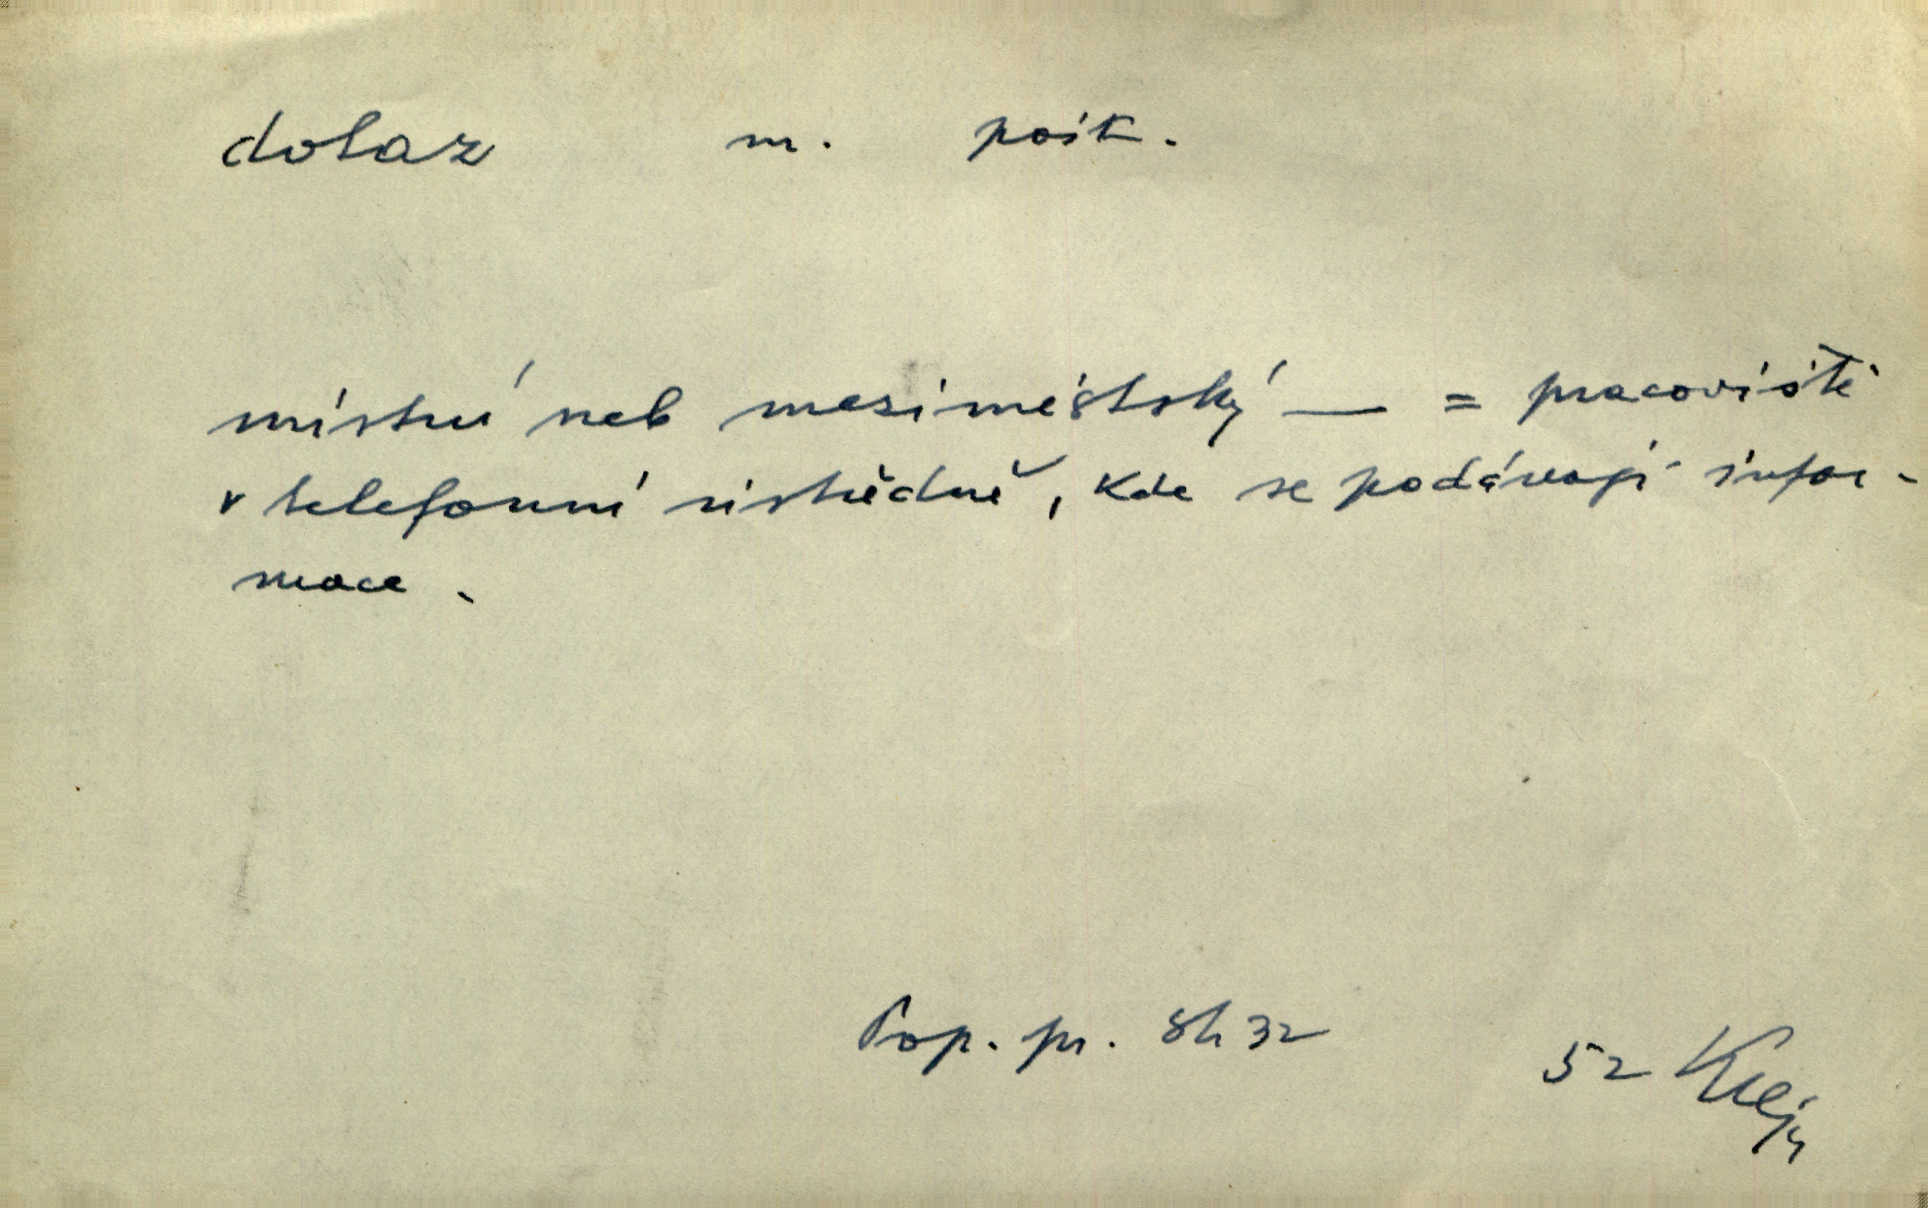 dotaz m. pošt.
místní neb meziměstský — = pracoviště
v telefonní ústředně, kde se podávají infor-
mace.
Pop. pr. 8h 32
52